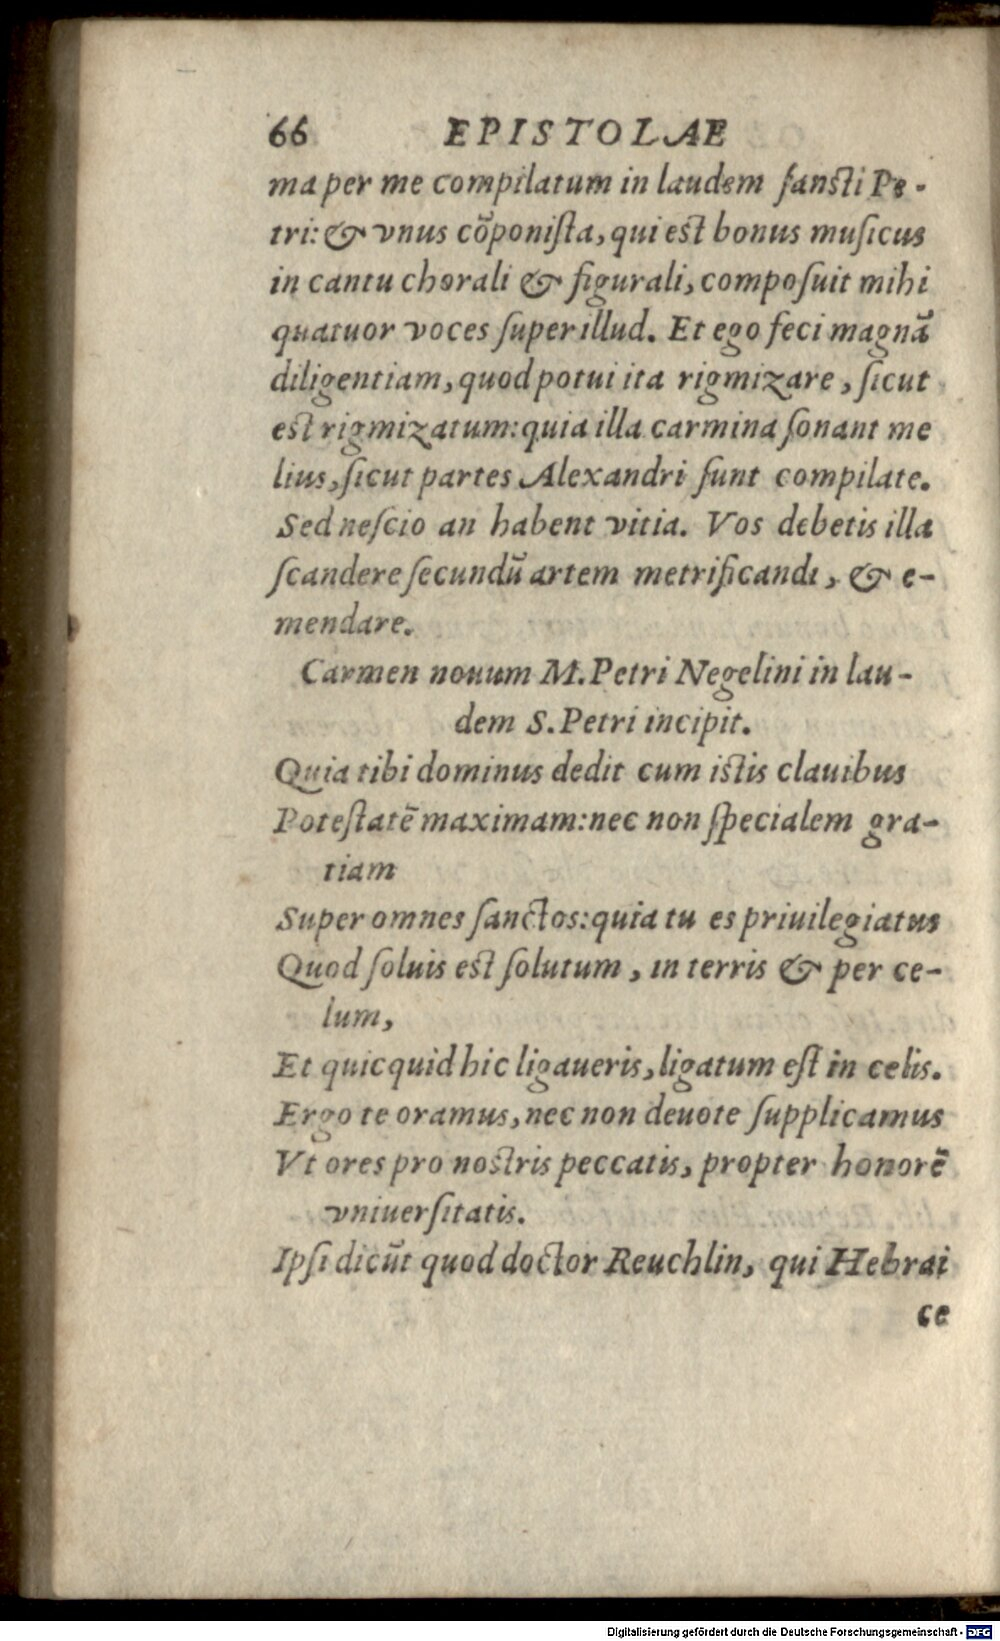 66 EPISTOLAE
ma per me compilatum in laudem ſansti Pe-
tri: & vnus cõponiſta, qui est bonus muſicus
in cantu chorali & figurali, compoſuit mihi
quatuor voces ſuper illud. Et ego feci magnã
diligentiam, quod potui ita rigmizare, ſicut
est rigmizatum: quia illa carmina ſonant me
lius, ſicut partes Alexandri ſunt compilate.
Sed neſcio an habent vitia. Vos debetis illa
ſcandere ſecundũ artem metrificandi, & e-
mendare.
Carmen nouum M. Petri Negelini in lau-
dem S. Petri incipit.
Quia tibi dominus dedit cum istis clauibus
Poteſtatẽ maximam: nec non ſpecialem gra-
tiam
Super omnes ſanctos: quia tu es priuilegiatus
Quod ſoluis est ſolutum, in terris & per ce-
lum,
Et quicquid hic ligaueris, ligatum eſt in celis.
Ergo te oramus, nec non deuote ſupplicamus
Vt ores pro nostris peccatis, propter honorẽ
vniuerſitatis.
Ipſi dicũt quod doctor Reuchlin, qui Hebrai
ce
Digitalisierung gefördert durch die Deutsche Forschungsgemeinschaft - DFG